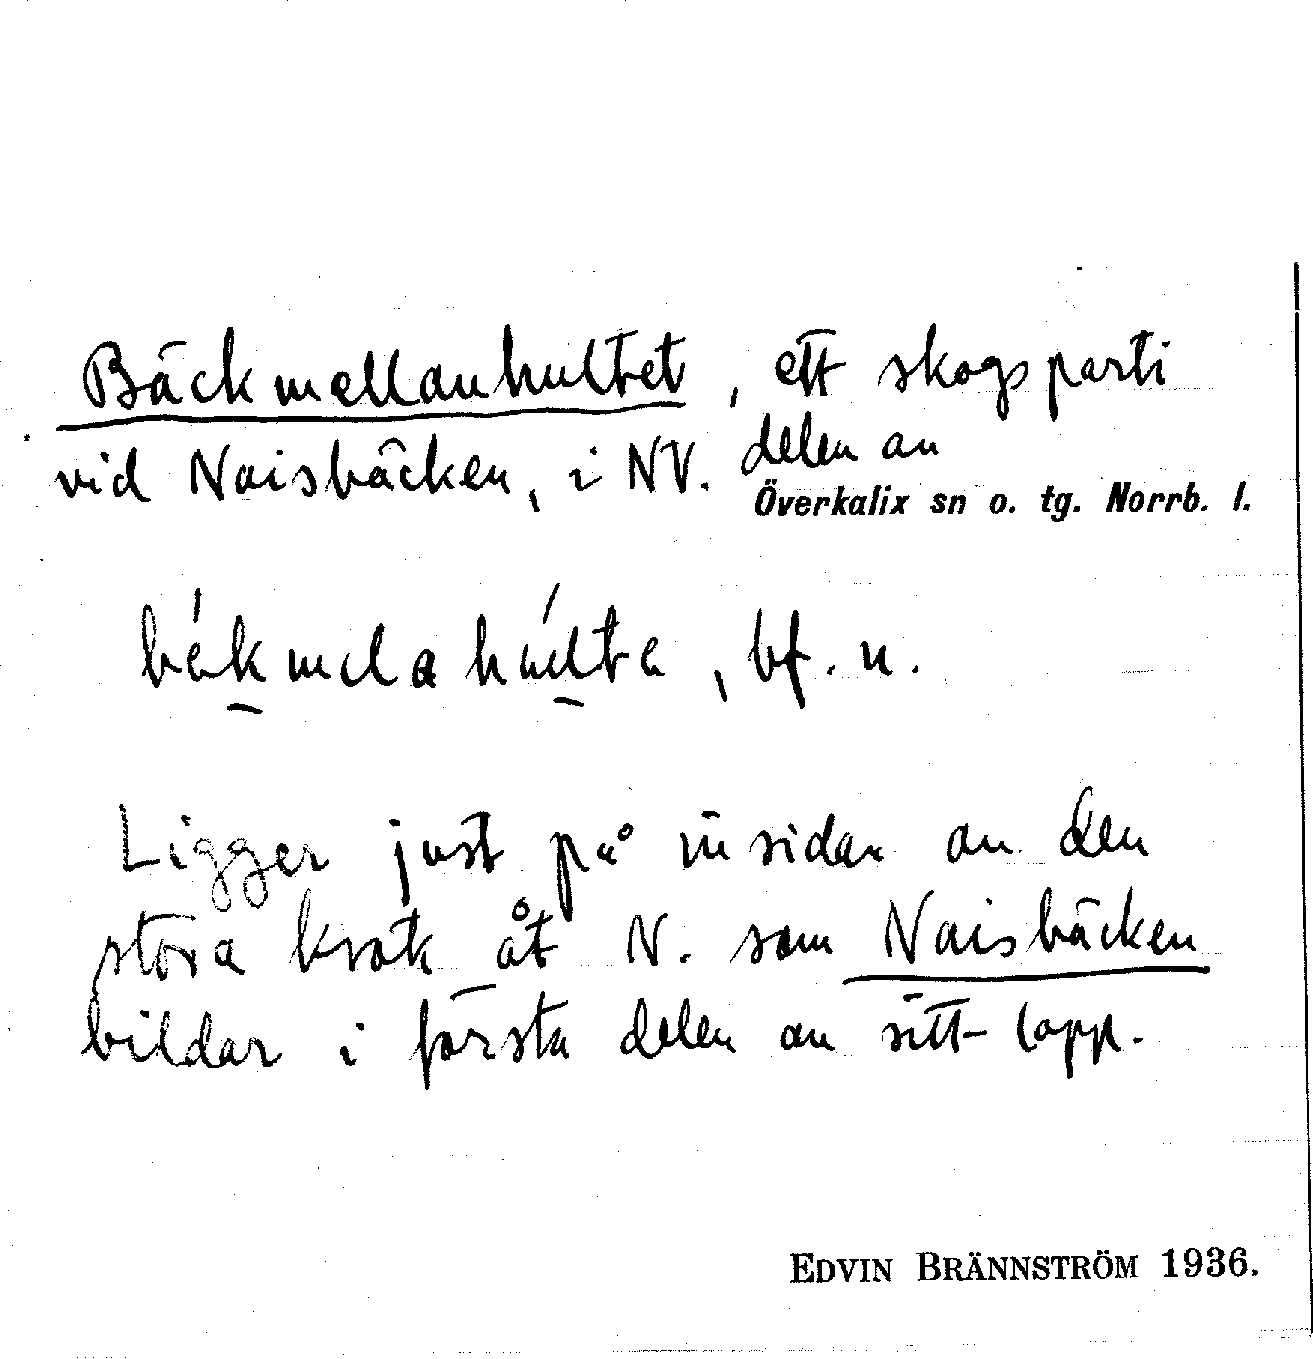 Bäckmellanhultet, ett skogsparti
vid Naisbäcken, i NV. delen av
Överkalix sn o. tg. Norrb. l.
bf. n.
Ligger just på insidan av den
stora krok åt N. som Naisbäcken
bildar i första delen av sitt lopp.
EDVIN BRÄNNSTRÖM 1936.